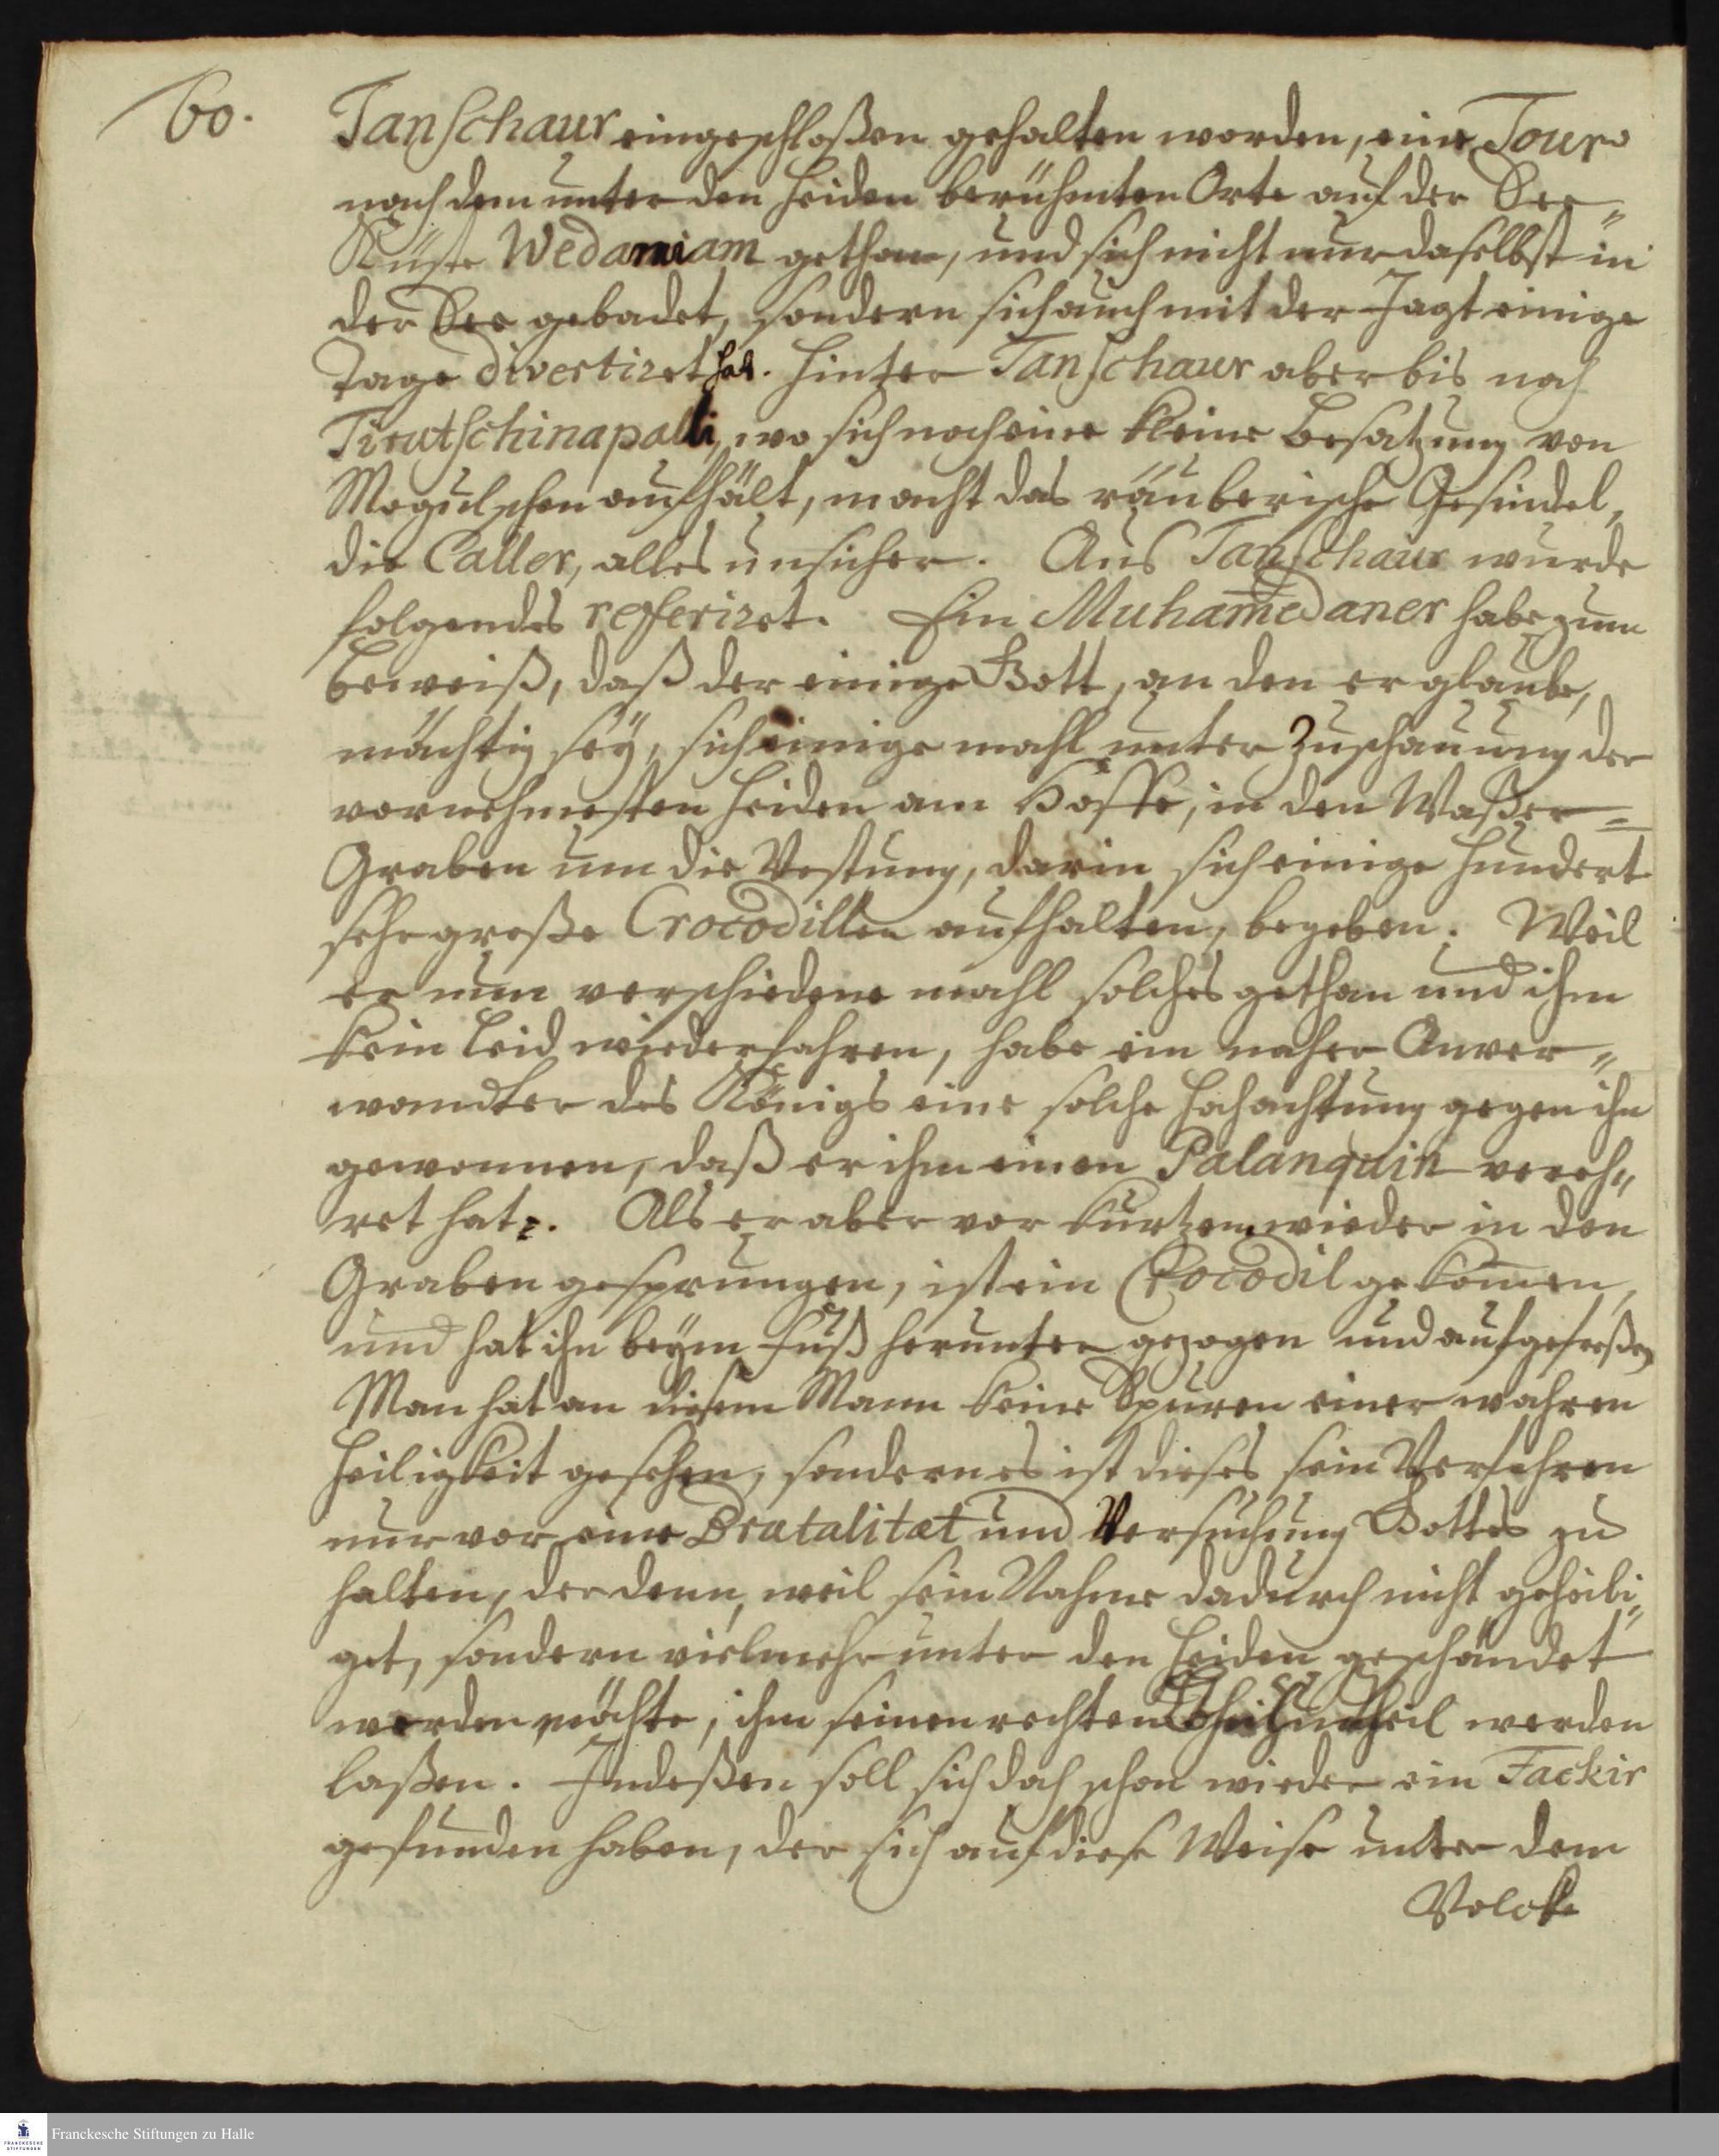 60.
Tanschaur eingeschloßen gehalten worden, eine Tour
nach dem unter den Heiden berühmten Orte auf der See-
Küste Wedaraniam gethan, und sich nicht nur daselbst in
der See gebadet, sondern sich auch mit der Jagt einige
Tage divertiret hat. Hinter Tanschaur aber bis nach
Tirutschinapalli, wo sich noch eine kleine Besatzung von
Mogulschen aufhält, macht das räuberische Gesindel,
die Caller, alles unsicher. Aus Tanschaur wurde
folgendes referiret. Ein Muhamedaner habe zum
Beweiß, daß der einige Gott, an den er glaube,
mächtig sey, sich einige mahl unter Zuschauung der
vornehmesten Heiden am Hoffe, in den Waßer=
Graben um die Vestung, darin sich einige hundert
sehr große Crocodillen aufhalten, begeben. Weil
er nun verschiedene mahl solches gethan und ihm
kein Leid wiederfahren, habe ein naher Anver-
wandter des Königs eine solche Hochachtung gegen ihn
gewonnen, daß er ihm einen Palanquin vereh-
ret hat. Als er aber vor kurtzem wieder in den
Graben gesprungen, ist ein Crocodil gekom̅en,
und hat ihn beym Fuß herunter gezogen und aufgefreßen
Man hat an diesem Mann keine Spuren einer wahren
Heiligkeit gesehen, sondern es ist dieses sein Verfahren
nur vor eine Brutalitæt und Versuchung Gottes zu
halten, der denn, weil sein Nahme dadurch nicht geheili-
get, sondern vielmehr unter den Heiden geschändet
werden möchte, ihm seinen rechten Urtheil werden
laßen. Indeßen soll sich doch schon wieder ein Fackir
gefunden haben, der sich auf diese Weise unter dem
Volcke
Franckesche Stiftungen zu Halle